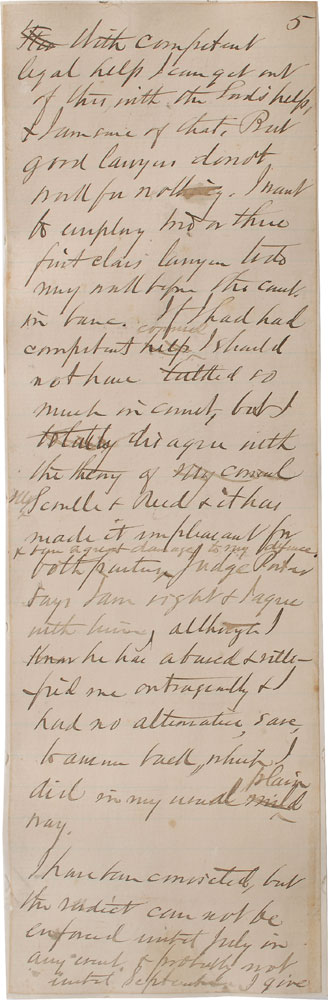 5
With competent
legal help I can get out
of this with the Lord's help,
& I am sure of that. But
good lawyers do not
work for nothing. I want
to employ two or three
first class lawyers to do
my work before the court
in banc. If I had had
counsel
competent help I should
not have talked so
much in court, but I
totally disagree with
the theory of my counsel
Messrs
Scoville & Reed & it has
made it unpleasant for
& done a great damage to my defence.
both parties. Judge Porter
says I am right & I agree
with him, although I
know he has abused & villi-
fied me outrageously & I
had no alternative, save,
to answer back, which I
plain
did in my usual mild
way.
I have been convicted, but
the verdict can not be
enforced until July in
any event & probably not
until September. I give